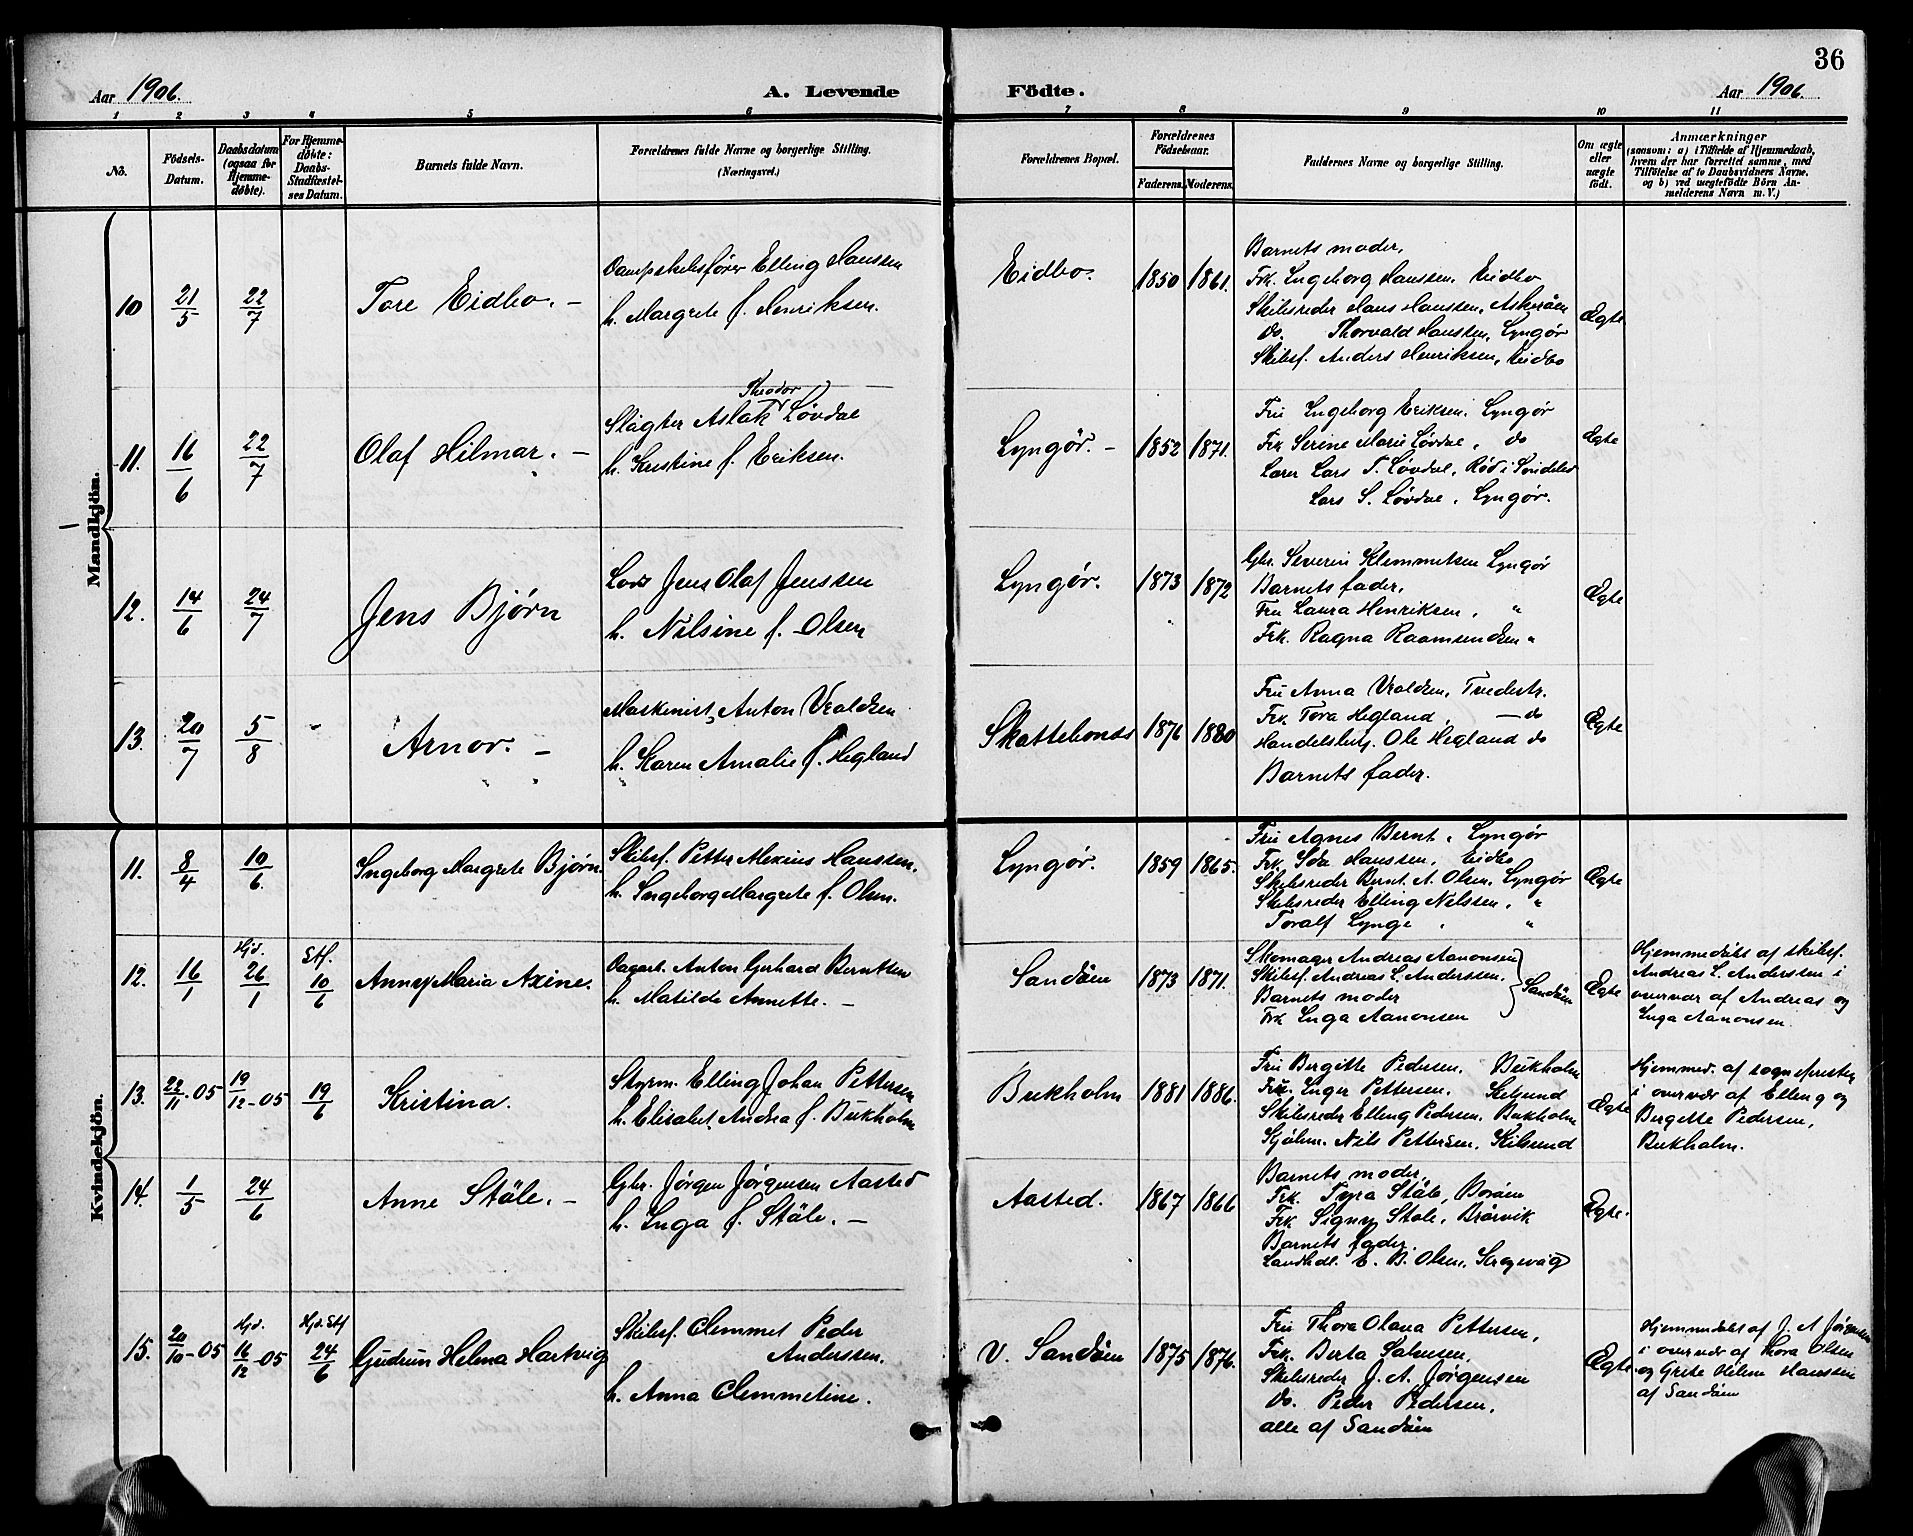 36
Aar 1906.
A. Levende Födte.
Aar 1906.
1 2 3 4 5 6 7 8 9 10 11
No.
Födsels-Datum.
Daabsdatum (ogsaa for Hjemme-döbte).
For Hjemme-döbte: Daabs-Stadfæstel-ses Datum.
Barnets fulde Navn.
Forældrenes fulde Navne og borgerlige Stilling.
(Næringsvei.)
Forældrenes Bopæl.
Forældrenes Födselsaar.
Faderens. Moderens.
Faddernes Navne og borgerlige Stilling.
Om ægte eller uægte födt.
Anmærkninger
(saasom: a) i Tilfælde af Hjemmedaab,
hvem der har forrettet samme, med
Tilföielse af to Daabsvidners Navne,
og b) ved uægtefödte Börn An-
melderens Navn m. V.)
Mandkjön.
10 21/5 22/7 Tore Eidbo. –
Dampskibsfører Elling Hanssen
h. Margrete f. Henriksen.
Eidbo. 1850 1861.
Barnets moder,
Frk. Ingeborg Hanssen, Eidbo
Skibsreder Hans Hanssen, Askerøen
Do. Thorvald Hanssen, Lyngør
Skibsf. Anders Henriksen, Eidbo
Ægte
11. 16/6 22/7 Olaf Hilmar. –
Slagter Aslak Theodor Løvdal
h. Kristine f. Eriksen.
Lyngör. – 1852 1871.
Fru Ingeborg Eriksen, Lyngør
Frk Serine Marie Løvdal, do
Lærer Lars T. Løvdal, Rød i Søndeled
Lars S. Løvdal, Lyngør.
Ægte
12. 14/6 24/7 Jens Bjørn
Lods Jens Olaf Jenssen
h. Nilsine f. Olsen
Lyngør. 1873 1872
Gbr. Severin Klemmetsen Lyngør
Barnets fader,
Fru Laura Henriksen, "
Frk. Ragna Raamundsen "
Ægte
13. 20/7 5/8 Arnor. –
Maskinist, Anton Vraldsen
h. Karen Amalie f. Hegland
Skattebonds 1876 1880
Fru Anna Vraldsen, Tvedestr.
Frk. Tora Hegland, – do
Handelsbetj. Ole Hegland do
Barnets fader.
Ægte
Kvindekjön.
11. 8/4 10/6. Ingeborg Margrete Bjørn.
Skibsf. Petter Alexius Hanssen,
h. Ingeborg Margrete f. Olsen.
Lyngör. 1859 1865.
Fru Agnes Bernt. Lyngør
Frk. Ida Hanssen, Eidbo
Skibsreder Bernt. A. Olsen, Lyngør
Skibsreder Elling Nilssen, "
Toralf Lynge, "
Ægte
12. 16/1 Hjd. 26/1 Stf. 10/6 Anny Maria Axine.
Dagarb. Anton Gerhard Berntsen
h. Matilde Annette. –
Sandöen 1873 1871.
Skomager Andreas Aanonsen
Skibsf. Andreas L. Anderssen,
Barnets moder
Frk Inga Aanonsen
Sandøen
Ægte
Hjemmedøbt af skibsf.
Andreas L. Anderssen i
overvær af Andreas og
Inga Aanonsen.
13. 22/11-05 19/12-05 19/6 Kristina.
Styrm. Elling Johan Pettersen
h. Elisabet Andrea f. Bukholm
Bukholm 1881 1886.
Fru Bergitte Pedersen, Bukholm
Fru. Inger Pettersen, Kilsund
Skibsreder Elling Pedersen, Bukholm
Sjøhm. Nils Pettersen, Kilsund
Ægte
Hjemmed. af sognepresten
i overvær af Elling og
Bergitte Pedersen,
Bukholm.
14. 1/5 24/6 Anne Ståle. –
Gbr. Jørgen Jørgensen Aasted
h. Inga f. Ståle. –
Aasted. 1867 1866
Barnets moder,
Frk. Tyra Ståle, Borøen
Frk Signy Ståle, Brårvik
Barnets fader,
Landhdl. E. B. Olsen, Krogevåg
Ægte.
15. 20/10-05 Hjd. 16/12-05 Hjd. Stf 24/6 Gudrun Helena Hartvig
Skibsf. Clemmet Peder
Anderssen.
h. Anna Clemmetine.
V. Sandöen 1875 1876.
Fru Thora Olava Pettersen,
Frk. Berta Salvesen,
Skibsreder J. A. Jørgensen
Do. Peder Pedersen,
alle af Sandøen
Ægte
Hjemmedøbt af J. A Jørgensen
i overvær af Thora Olsen
og Grete Helene Hanssen
af Sandøen